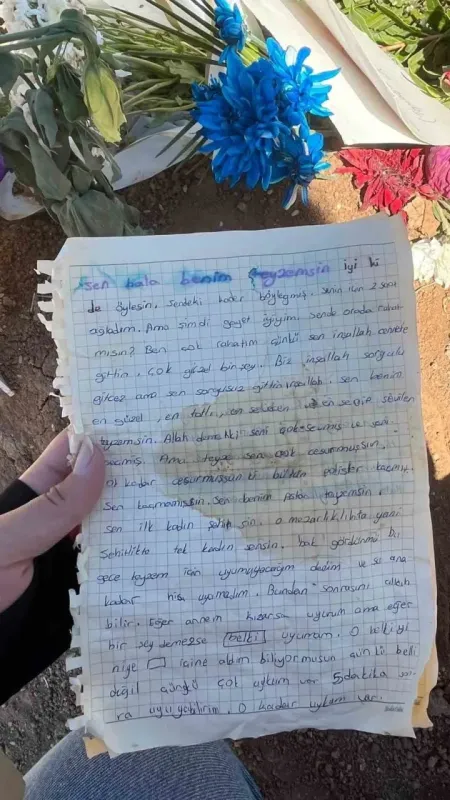 sen hala benim teyzemsin iyi ki
de öylesin, sendeki kadir böyleymiş. senin için 2 saat
ağladım. Ama şimdi gayet iyiyim. sende orada rahat
mısın? Ben çok rahatım çünkü sen inşallah cennete
gittin. çok güzel bir şey. Biz inşallah sorgulu
gitcez ama sen sorgusuz gittin inşallah. sen benim
en güzel, en tatlı, en en sevilen
teyzemsin. Allah demekki seni çok sevmiş ve seni
seçmiş. Ama teyze sen çok cesurmuşsun.
O kadar cesurmuşsun ki bütün polisler kaçmış.
Sen kaçmamışsın. Sen benim teyzemsin.
sen ilk kadın şehitsin. o mezarlıkta yani
Şehitlikte tek kadın sensin. bak gördünmü bu
gece teyzem için uyumuyacağım dedim ve şu ana
kadar hiç uyumadım. Bundan sonrasını allah
bilir. Eğer annem kızarsa uyurum ama eğer
bir şey demezse belki uyumam. O belkiyi
niye içine aldım biliyormusun çünkü belli
değil çünkü çok uykum var 5 dakika son
ra uyuyabilirim. O kadar uykum var.